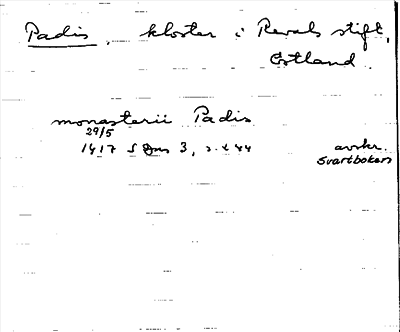 Padis, kloster i Revals stift,
Estland.
monasterii Padis
29/5
1417 SDns 3, s. 444
avskr.
Svartboken